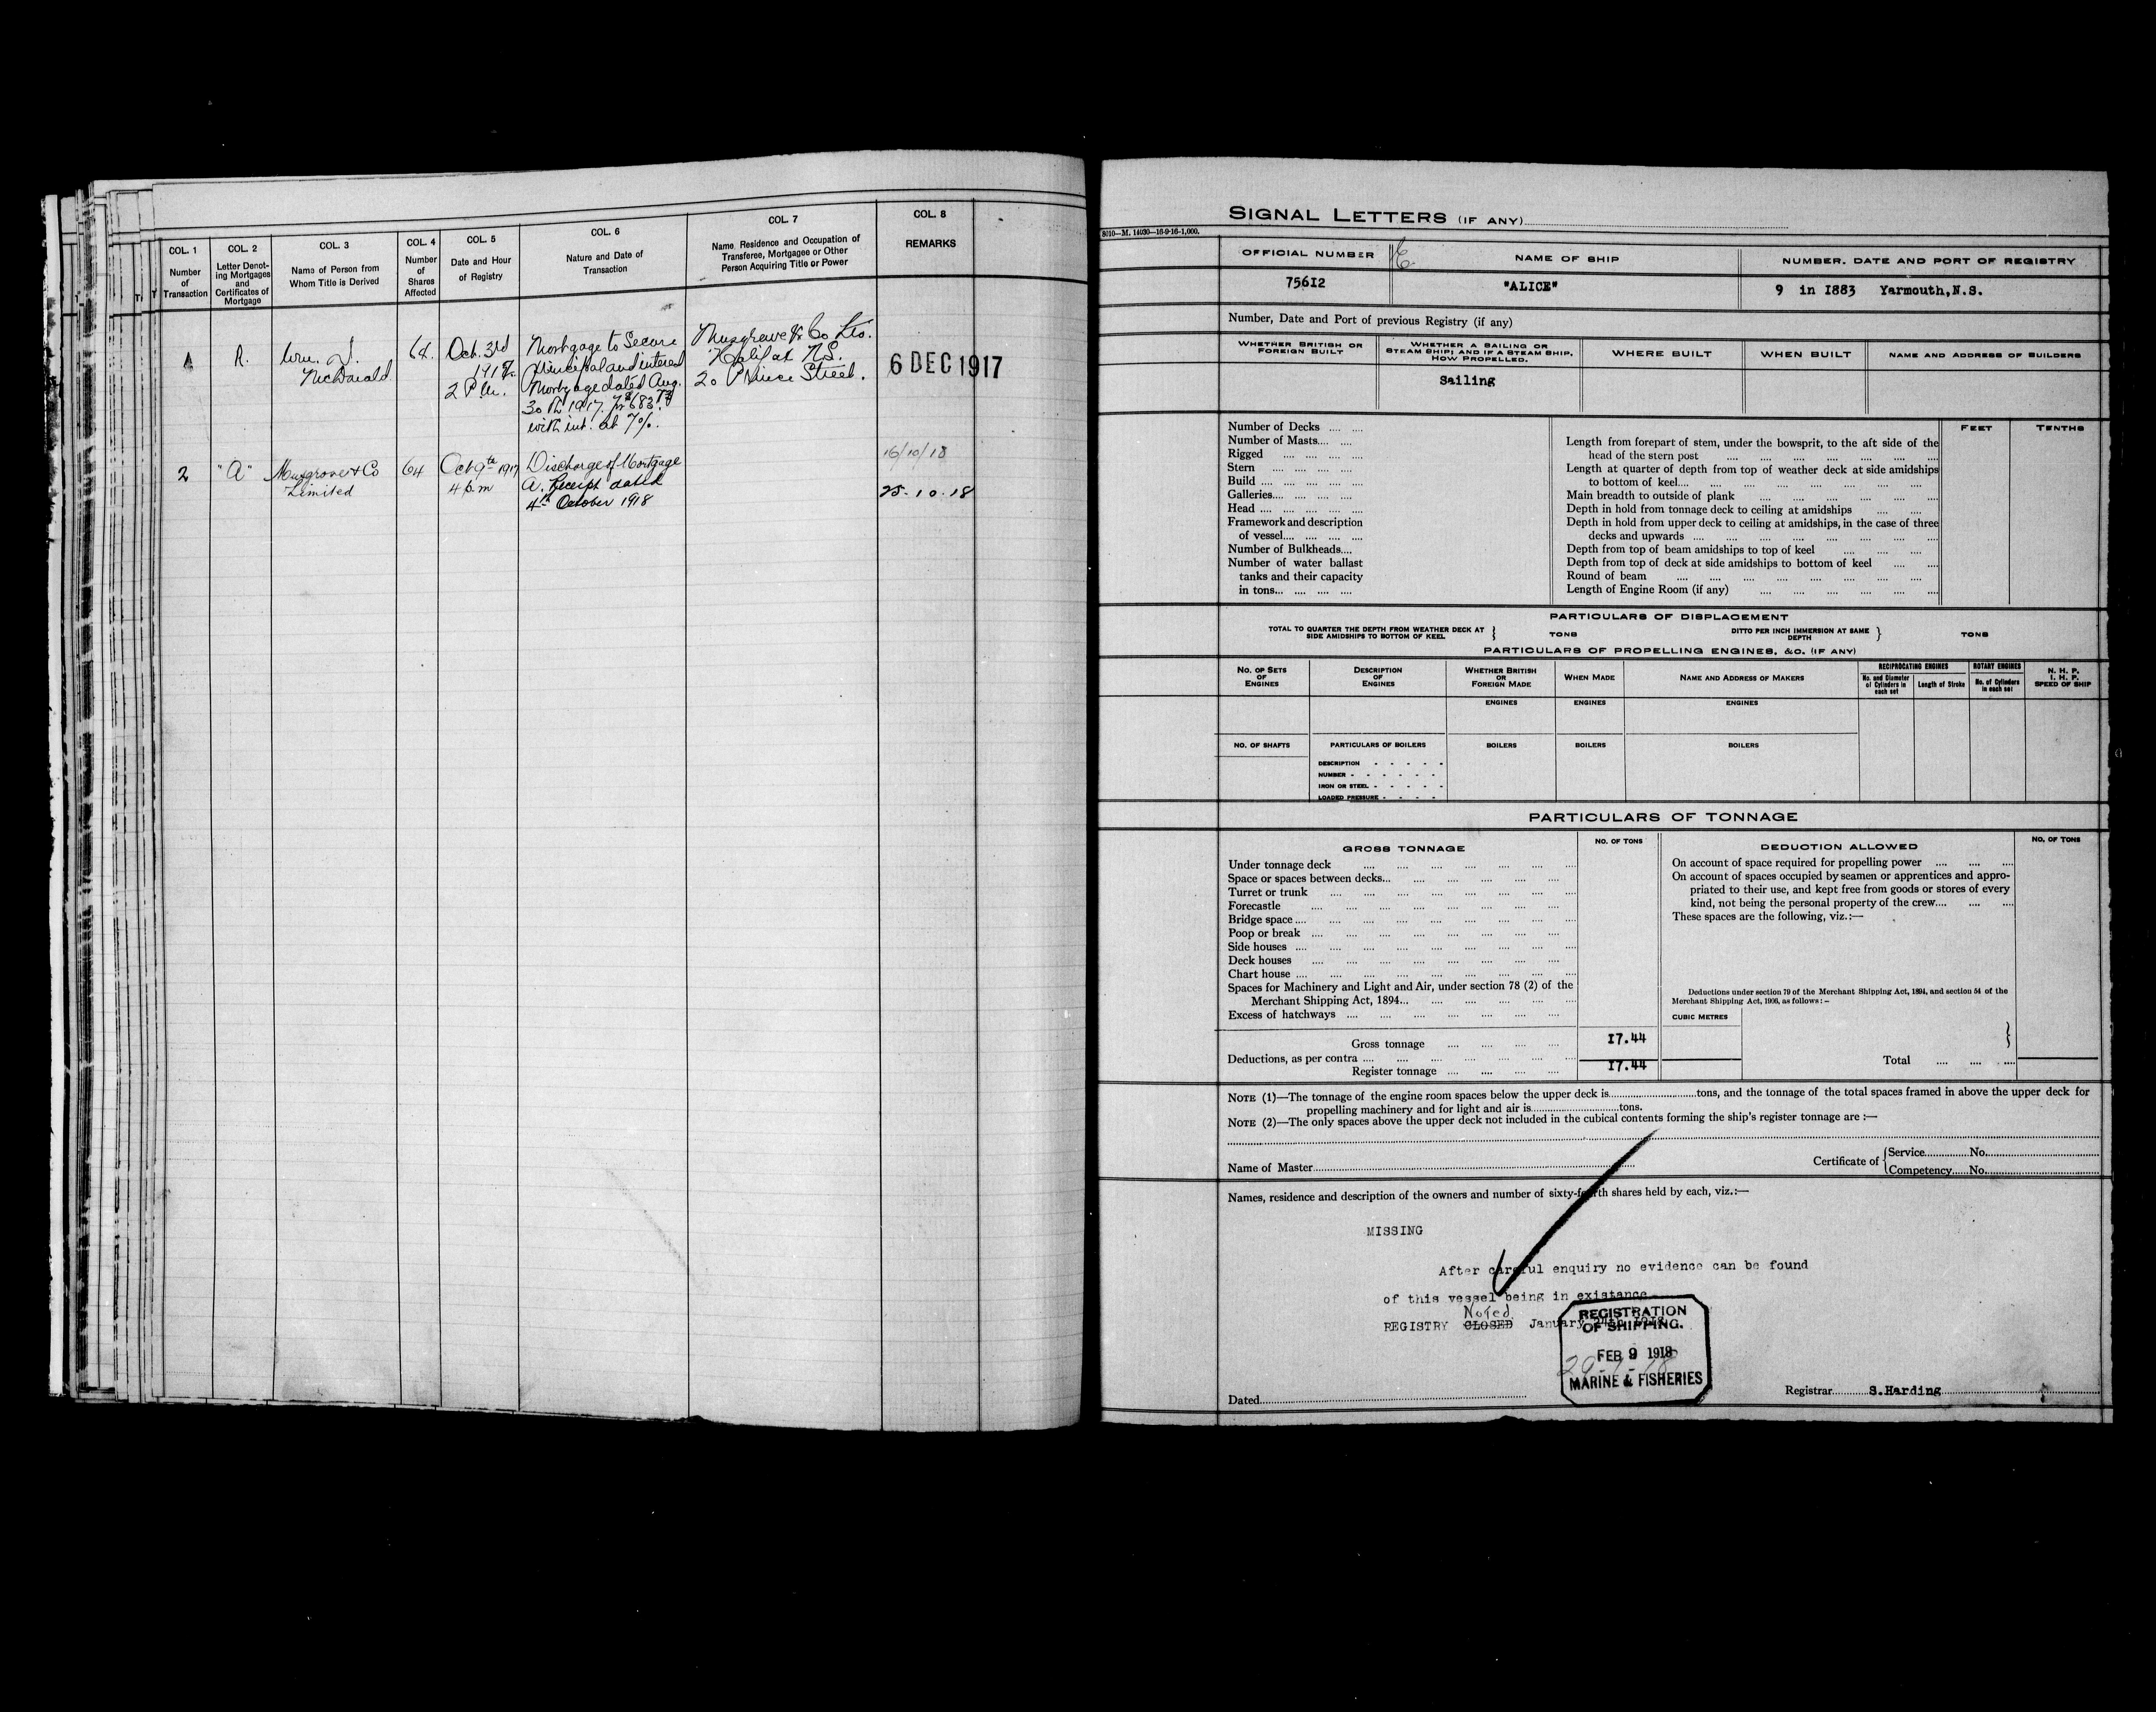 COL. 1
Number
of
Transaction
COL. 2
Letter Denot-
ing Mortgages
and
Certificates of
Mortgage
COL. 3
Name of Person from
Whom Title is Derived
COL. 4
Number
of
Shares
Affected
COL. 5
Date and Hour
of Registry
COL. 6
Nature and Date of
Transaction
COL. 7
Name, Residence and Occupation of
Transferee, Mortgagee or Other
Person Acquiring Title or Power
COL. 8
REMARKS
Wm. J.
McDonald
64.
Oct. 3rd
1917.
2 P.M.
Mortgage to Secure
Principal and interest
Mortgage dated Aug.
30th 1917. for
with int. at 7%.
Musgrave & Co Ltd.
Halifax N.S.
20 Prince Street.
6 DEC 1917
2
"A"
Musgrave & Co
Limited
64
Oct 9th
4 p.m
Discharge of Mortgage
A. Receipt dated
4th October 1918
16/10/18
25.10.18
SIGNAL LETTERS (IF ANY)
8010—M. 14030—16-9-16-1,000.
OFFICIAL NUMBER
NAME OF SHIP
NUMBER, DATE AND PORT OF REGISTRY
75612
"ALICE"
9 in 1883 Yarmouth,N.S.
Number, Date and Port of previous Registry (if any)
WHETHER BRITISH OR
FOREIGN BUILT
WHETHER A SAILING OR
STEAM SHIP; AND IF A STEAM SHIP,
HOW PROPELLED.
WHERE BUILT
WHEN BUILT
NAME AND ADDRESS OF BUILDERS
Sailing
Number of Decks
Number of Masts
Rigged
Stern
Build
Galleries
Head
Framework and description
of vessel
Number of Bulkheads
Number of water ballast
tanks and their capacity
in tons
FEET
TENTHS
Length from forepart of stem, under the bowsprit, to the aft side of the
head of the stern post
Length at quarter of depth from top of weather deck at side amidships
to bottom of keel
Main breadth to outside of plank
Depth in hold from tonnage deck to ceiling at amidships
Depth in hold from upper deck to ceiling at amidships, in the case of three
decks and upwards
Depth from top of beam amidships to top of keel
Depth from top of deck at side amidships to bottom of keel
Round of beam
Length of Engine Room (if any)
PARTICULARS OF DISPLACEMENT
TOTAL TO QUARTER THE DEPTH FROM WEATHER DECK AT
SIDE AMIDSHIPS TO BOTTOM OF KEEL
TONS
DITTO PER INCH IMMERSION AT SAME
DEPTH
TONS
PARTICULARS OF PROPELLING ENGINES, &C. (IF ANY)
NO. OF SETS
OF
ENGINES
DESCRIPTION
OF
ENGINES
WHETHER BRITISH
OR
FOREIGN MADE
WHEN MADE
NAME AND ADDRESS OF MAKERS
RECIPROCATING ENGINES
No. and Diameter
of Cylinders in
each set
Length of Stroke
ROTARY ENGINES
No. of Cylinders
in each set
N. H. P.
I. H. P.
SPEED OF SHIP
ENGINES
ENGINES
ENGINES
NO. OF SHAFTS
PARTICULARS OF BOILERS
BOILERS
BOILERS
BOILERS
DESCRIPTION
NUMBER
IRON OR STEEL
LOADED PRESSURE
PARTICULARS OF TONNAGE
GROSS TONNAGE
NO. OF TONS
Under tonnage deck
Space or spaces between decks
Turret or trunk
Forecastle
Bridge space
Poop or break
Side houses
Deck houses
Chart house
Spaces for Machinery and Light and Air, under section 78 (2) of the
Merchant Shipping Act, 1894
Excess of hatchways
Gross tonnage
17.44
Deductions, as per contra
Register tonnage
17.44
DEDUCTION ALLOWED
NO. OF TONS
On account of space required for propelling power
On account of spaces occupied by seamen or apprentices and appro-
priated to their use, and kept free from goods or stores of every
kind, not being the personal property of the crew
These spaces are the following, viz.:—
Deductions under section 79 of the Merchant Shipping Act, 1894, and section 54 of the
Merchant Shipping Act, 1906, as follows:—
CUBIC METRES
Total
NOTE (1)—The tonnage of the engine room spaces below the upper deck is tons, and the tonnage of the total spaces framed in above the upper deck for
propelling machinery and for light and air is tons.
NOTE (2)—The only spaces above the upper deck not included in the cubical contents forming the ship's register tonnage are :—
Name of Master
Certificate of
Service No.
Competency No.
Names, residence and description of the owners and number of sixty-fourth shares held by each, viz.:—
MISSING
After careful enquiry no evidence can be found
of this vessel being in existance
Noted
REGISTRY CLOSED January 24th 1918
REGISTRATION
OF SHIPPING.
FEB 9 1918
MARINE & FISHERIES
Dated
Registrar S.Harding